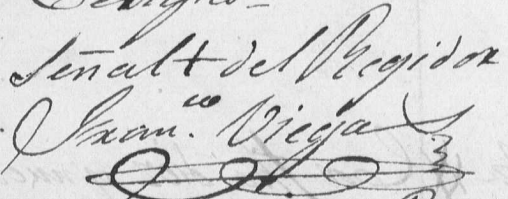 Señal + del Regidor
Fran.co Viega